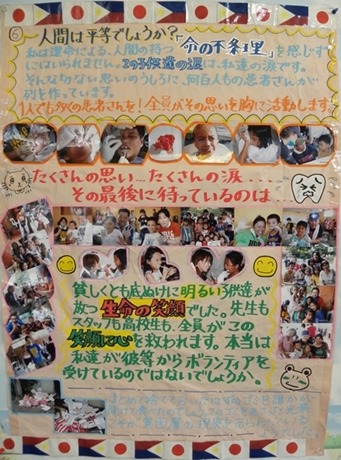 ⑥ 人間は平等でしょうか?
私は運命による、人間の持つ「命の不条理」を感じず
にはいられません。この子供達の涙は、私達の涙です。
そんな切ない思いのうしろに、何百人もの患者さんが
列を作っています。
1人でも多くの患者さんを!全員がその思いを胸に活動します。
たくさんの思い…たくさんの涙…
その最後に待っているのは…
貧しくとも底ぬけに明るい子供達が
放つ生命の笑顔でした。先生も
スタッフも高校生も、全員がこの
笑顔に心を救われます。本当は
私達が彼等からボランティアを
受けているのではないでしょうか。